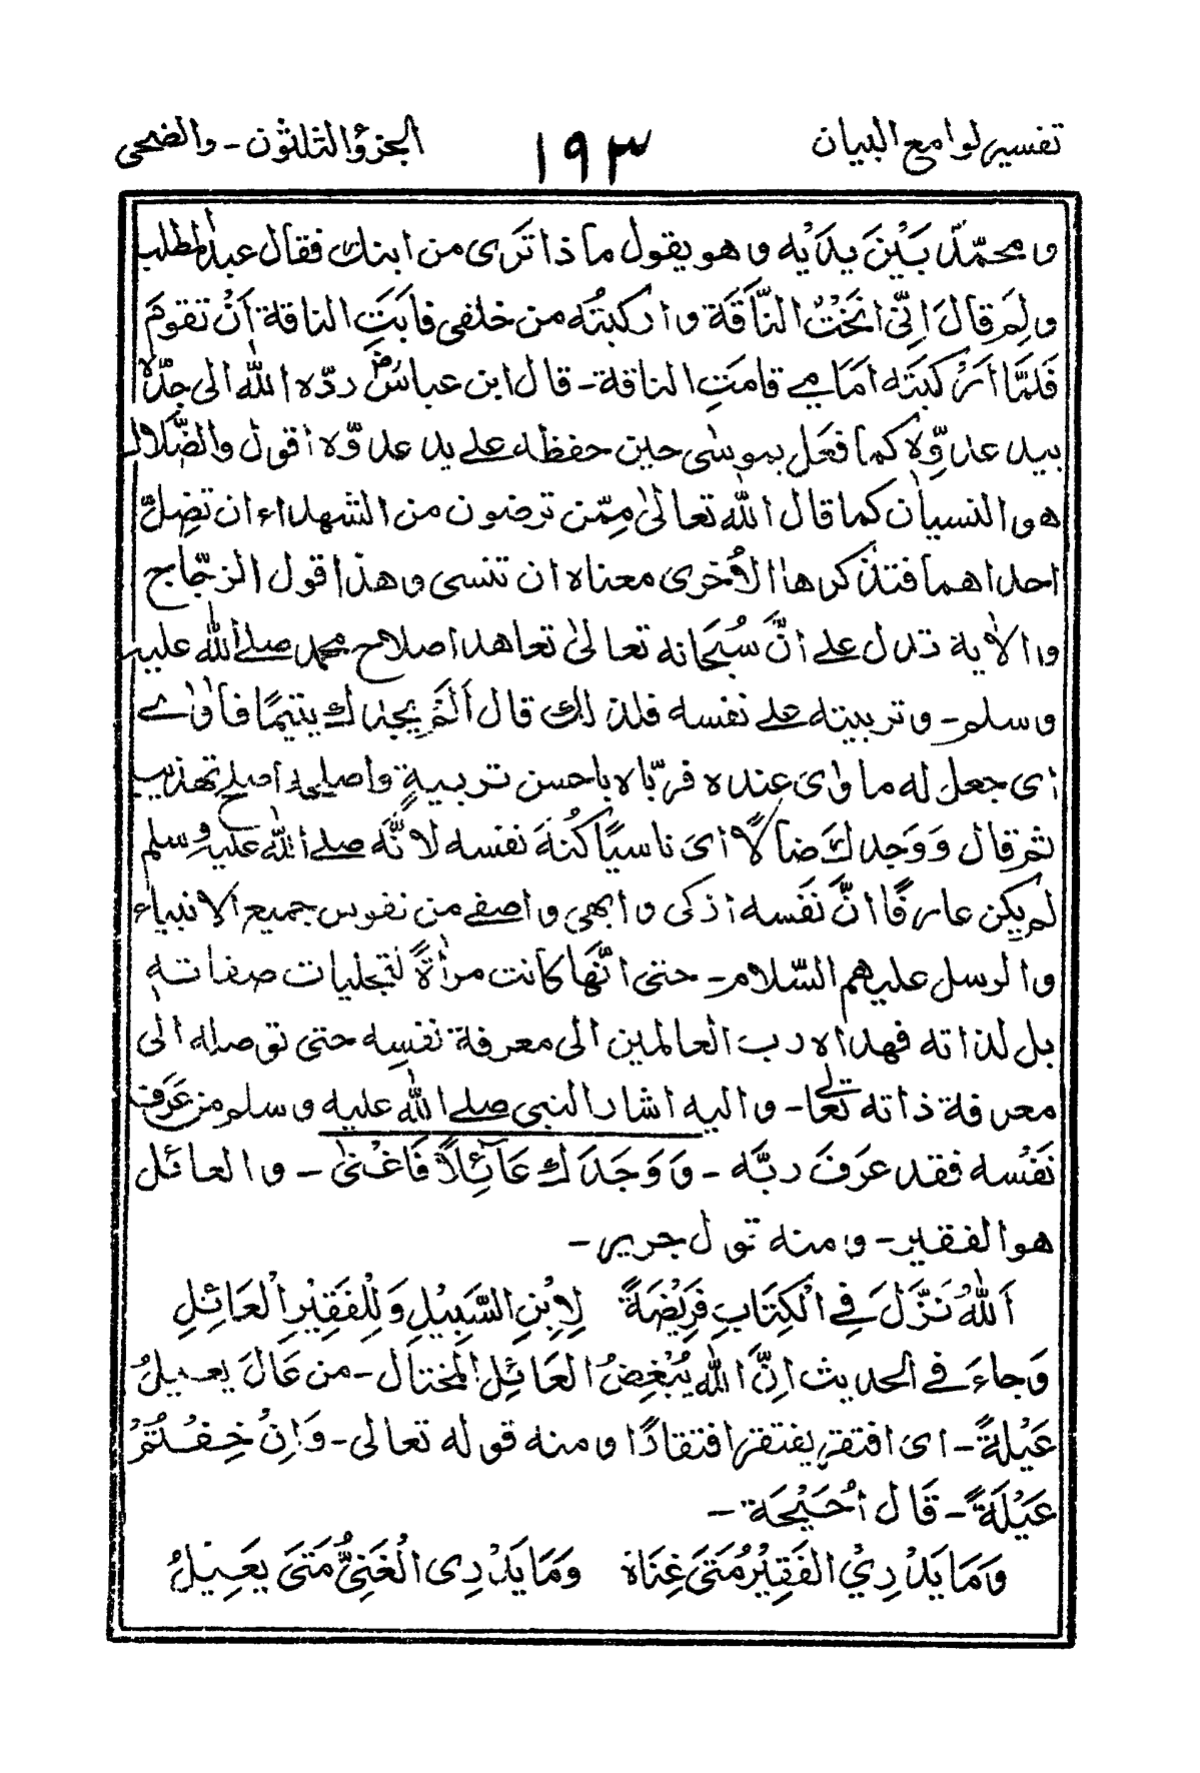 تفسير لوامع البيان ١٩٣ الجزؤ الثلثون - والضحى
و محمّدٌ بَيْنَ يديْه و هو يقول ما ذا تَرى من ابنك فقال عبد المطلب
و لِمَ قالَ اِنّى انَخْتُ النّاقَة و اركبتُه من خلفى فابَتِ الناقة اَنْ تقومَ
فَلمَّا اَرْكبتَه امَامِے قامتِ الناقة - قال ابن عباسٌؓ ردّه اللّٰه الى جدِّهٖ
بيد عدوِّهٖ كما فعَل بموسٰى حين حفظه علے يد عدوّه اقول والضّلال
هو النسيان كما قال اللّٰه تعالىٰ مِمّن ترضون من الشهداء ان تضِلَّ
احداهما فتذكرها الاُخرى معناه ان تنسى و هذا قول الزجّاج
والاٰية تدل علے انَّ سُبْحَانه تعالىٰ تعاهد اصلاح محمد صلے اللّٰه عليه
و سلم - و تربيته علے نفسه فلذلك قال اَلَمْ يجدك يتيمًا فاٰوٰے
اى جعل له ماوٰى عنده فربّاه باحسن تربيةٍ واصلحه اصلح تهذيب
ثم قال وَوَجدك ضالًّا اى ناسيًا كُنْهَ نفسه لانَّه صلے اللّٰه عليه وسلم
لم يكن عارفًا انَّ نَفْسه اذكى و ابهى و اصفے من نفوس جميع الانبياء
والرسل عليهم السّلام - حتى انّهَا كانت مراٰةً لتجليات صفاته
بل لذاته فهداه رب العالمين الى معرفة نفسِه حتى توصله الى
معرفة ذاته تعالے - و اليه اشار النبى صلے اللّٰه عليه و سلم من عَرَفَ
نَفْسه فقد عرَفَ ربَّه - وَوَجَدَكَ عَآئِلًا فَاَغْنٰى - والعائل
هو الفقير - و منه قول جرير -
اَللّٰهُ نَزَّلَ فِے الْكِتَابِ فَرِيْضَةً لِاِبْنِ السَّبِيْلِ وَلِلْفَقِيْرِ الْعَائِلِ
وَجاءَ فے الحديث اِنَّ اللّٰه يُبْغِضُ العَائِلَ المختال - من عَالَ يعيلُ
عَيْلةً - اى افتقر يفتقر افتقارًا و منه قوله تعالى - وَاِنْ خِفْتُمْ
عَيْلَةً - قَال اُحَيْحَة -
وَمَا يَدْرِيْ الفَقِيْرُ مَتىَ غِنَاهُ وَمَا يَدْرِى الْغَنِىُّ مَتىَ يَعِيْلُ